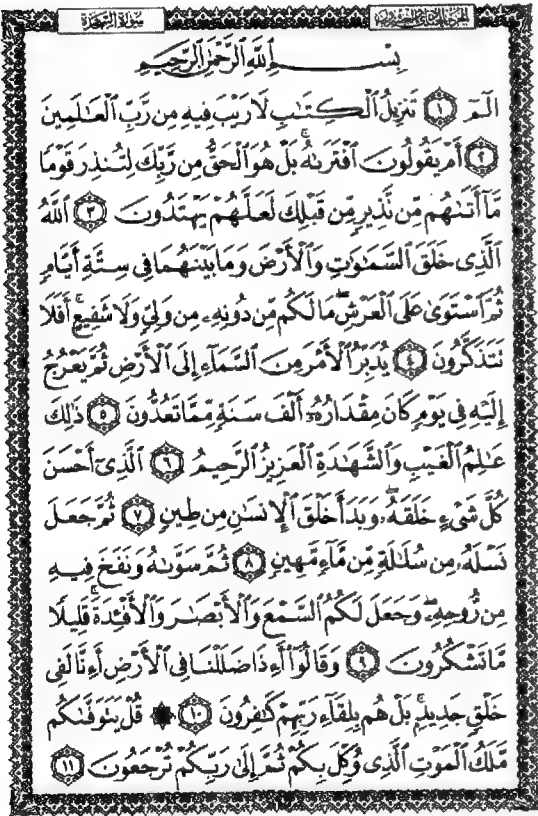 سورة السجدة
الجزء الحادي والعشرون
بِسْمِ اللَّهِ الرَّحْمَٰنِ الرَّحِيمِ
الٓمٓ ١ تَنزِيلُ ٱلْكِتَٰبِ لَا رَيْبَ فِيهِ مِن رَّبِّ ٱلْعَٰلَمِينَ
٢ أَمْ يَقُولُونَ ٱفْتَرَىٰهُ ۚ بَلْ هُوَ ٱلْحَقُّ مِن رَّبِّكَ لِتُنذِرَ قَوْمًا
مَّآ أَتَىٰهُم مِّن نَّذِيرٍ مِّن قَبْلِكَ لَعَلَّهُمْ يَهْتَدُونَ ٣ ٱللَّهُ
ٱلَّذِى خَلَقَ ٱلسَّمَٰوَٰتِ وَٱلْأَرْضَ وَمَا بَيْنَهُمَا فِى سِتَّةِ أَيَّامٍ
ثُمَّ ٱسْتَوَىٰ عَلَى ٱلْعَرْشِ ۖ مَا لَكُم مِّن دُونِهِۦ مِن وَلِىٍّ وَلَا شَفِيعٍ ۚ أَفَلَا
تَتَذَكَّرُونَ ٤ يُدَبِّرُ ٱلْأَمْرَ مِنَ ٱلسَّمَآءِ إِلَى ٱلْأَرْضِ ثُمَّ يَعْرُجُ
إِلَيْهِ فِى يَوْمٍ كَانَ مِقْدَارُهُۥٓ أَلْفَ سَنَةٍ مِّمَّا تَعُدُّونَ ٥ ذَٰلِكَ
عَٰلِمُ ٱلْغَيْبِ وَٱلشَّهَٰدَةِ ٱلْعَزِيزُ ٱلرَّحِيمُ ٦ ٱلَّذِىٓ أَحْسَنَ
كُلَّ شَىْءٍ خَلَقَهُۥ ۖ وَبَدَأَ خَلْقَ ٱلْإِنسَٰنِ مِن طِينٍ ٧ ثُمَّ جَعَلَ
نَسْلَهُۥ مِن سُلَٰلَةٍ مِّن مَّآءٍ مَّهِينٍ ٨ ثُمَّ سَوَّىٰهُ وَنَفَخَ فِيهِ
مِن رُّوحِهِۦ ۖ وَجَعَلَ لَكُمُ ٱلسَّمْعَ وَٱلْأَبْصَٰرَ وَٱلْأَفْـِٔدَةَ ۚ قَلِيلًا
مَّا تَشْكُرُونَ ٩ وَقَالُوٓا۟ أَءِذَا ضَلَلْنَا فِى ٱلْأَرْضِ أَءِنَّا لَفِى
خَلْقٍ جَدِيدٍۭ ۚ بَلْ هُم بِلِقَآءِ رَبِّهِمْ كَٰفِرُونَ ١٠ ۞ قُلْ يَتَوَفَّىٰكُم
مَّلَكُ ٱلْمَوْتِ ٱلَّذِى وُكِّلَ بِكُمْ ثُمَّ إِلَىٰ رَبِّكُمْ تُرْجَعُونَ ١١